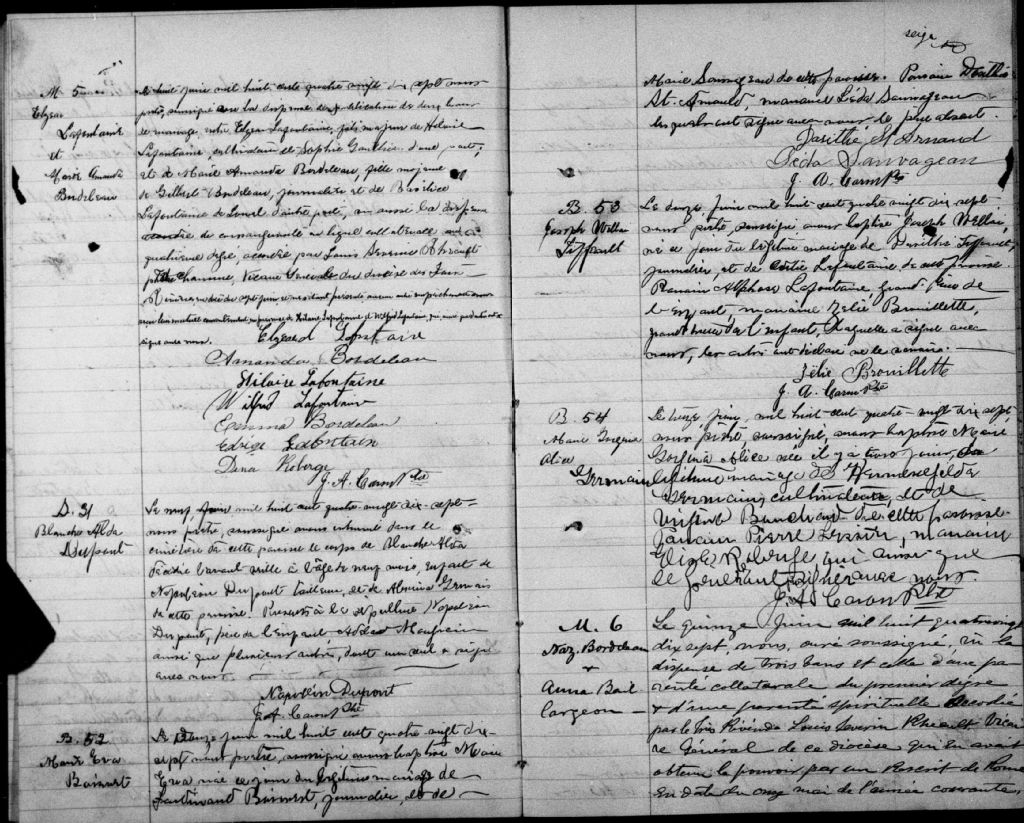 M. 5
Elzear
Lafontaine
et
Marie Amanda
Bordeleau
Le huit juin mil huit cent quatre vingt dix sept nous
prêtre, soussigné avec la dispense de publication de deux bans
de mariage, entre Elzear Lafontaine, fils majeur de Hilaire
Lafontaine, cultivateur et Sophie Gauthier d'une part;
et de Marie Amanda Bordeleau, fille majeure
de Gilbert Bordeleau, journalier et de Basilice
Lafontaine de d'autre part, vu aussi la dispense
de consanguinité en ligne collatérale au
quatrième degré, accordée par Louis Severin Rheault
prêtre chanoine, Vicaire General du diocèse des Trois
Rivières en date du sept juin, et n'ayant aucun empêchement avons
reçu leur mutuel consentement en presence de Hilaire Lafontaine et Wilfred Lafontaine, qui ont
signé avec nous.
Elzeard Lafontaine
Amanda Bordeleau
Hilaire Lafontaine
Wilfrid Lafontaine
Emma Bordeleau
Edige Lafontain
Dina Roberge
J. A. Caron Ptre
D. 31
Blanche Alda
Dupont
Le neuf, juin mil huit cent quatre-vingt-dix-sept-
nous prêtre, soussigné avons inhumé dans le
cimetière de cette paroisse le corps de Blanche Alda
à l'âge de neuf mois, enfant de
Napoléon Dupont tailleur, et de Alvina Germain
de cette paroisse. Presents à la sepulture Napoléon
Dupont, père de l'enfant,
ainsi que plusieurs autres, dont un seul a signé
avec nous.
Napoléon Dupont
J. A. Caron Ptre
B. 52
Marie Eva
Boisvert
Le Douze juin mil huit cent quatre vingt dix-
sept nous prêtre, soussigné avons baptisé Marie
Eva née ce jour du légitime mariage de
Ferdinand Boisvert, journalier, et de
seize
Marie Sauvageau de cette paroisse. Parrain Dosithé
St. Arnauld, marraine Léda Sauvageau
lesquels ont signé avec nous le père absent.
Dosithé St Arnaud
Léda Sauvageau
J. A. Caron Ptre
B. 53
Joseph William
Tiffault
Le douze juin mil huit cent quatre vingt dix sept
nous prêtre, soussigné avons baptisé Joseph William,
né ce jour du légitime mariage de Dosithé Tiffault,
journalier, et de Lafontaine de cette paroisse.
Parrain Alphose Lafontaine grand Père de
l'enfant, marraine Zélie Brouillette,
grand'mère de l'enfant, laquelle a signé avec
nous, les autres ont déclaré ne le savoir.
Zélie Brouillette
J. A. Caron Ptre
B. 54
Marie
Alice
Germain
Le juin, mil huit-cent quatre-vingt dix sept,
nous prêtre, soussigné, avons baptisé Marie
Alice née il y a trois jours, du
légitime mariage de
Germain, cultivateur, et de
de cette paroisse
Parrain Pierre marraine
Edige Roberge qui ainsi que
le père ont signé avec nous.
J. A. Caron Ptre
M. 6
Naz. Bordeleau
+
Anna Bail
largeon
Le quinze Juin mil huit quatrevingt
dix sept, nous, curé soussigné, vu la
dispense de trois bans et celle d'une pa
renté collatérale du premier degré
+ d'une parenté spirituelle accordée
par le très Révérend Louis Severin Rheault Vicai
re Général de ce diocèse qui en avait
obtenu le pouvoir par un Rescrit de Rome
en date du onze mai de l'année courante,